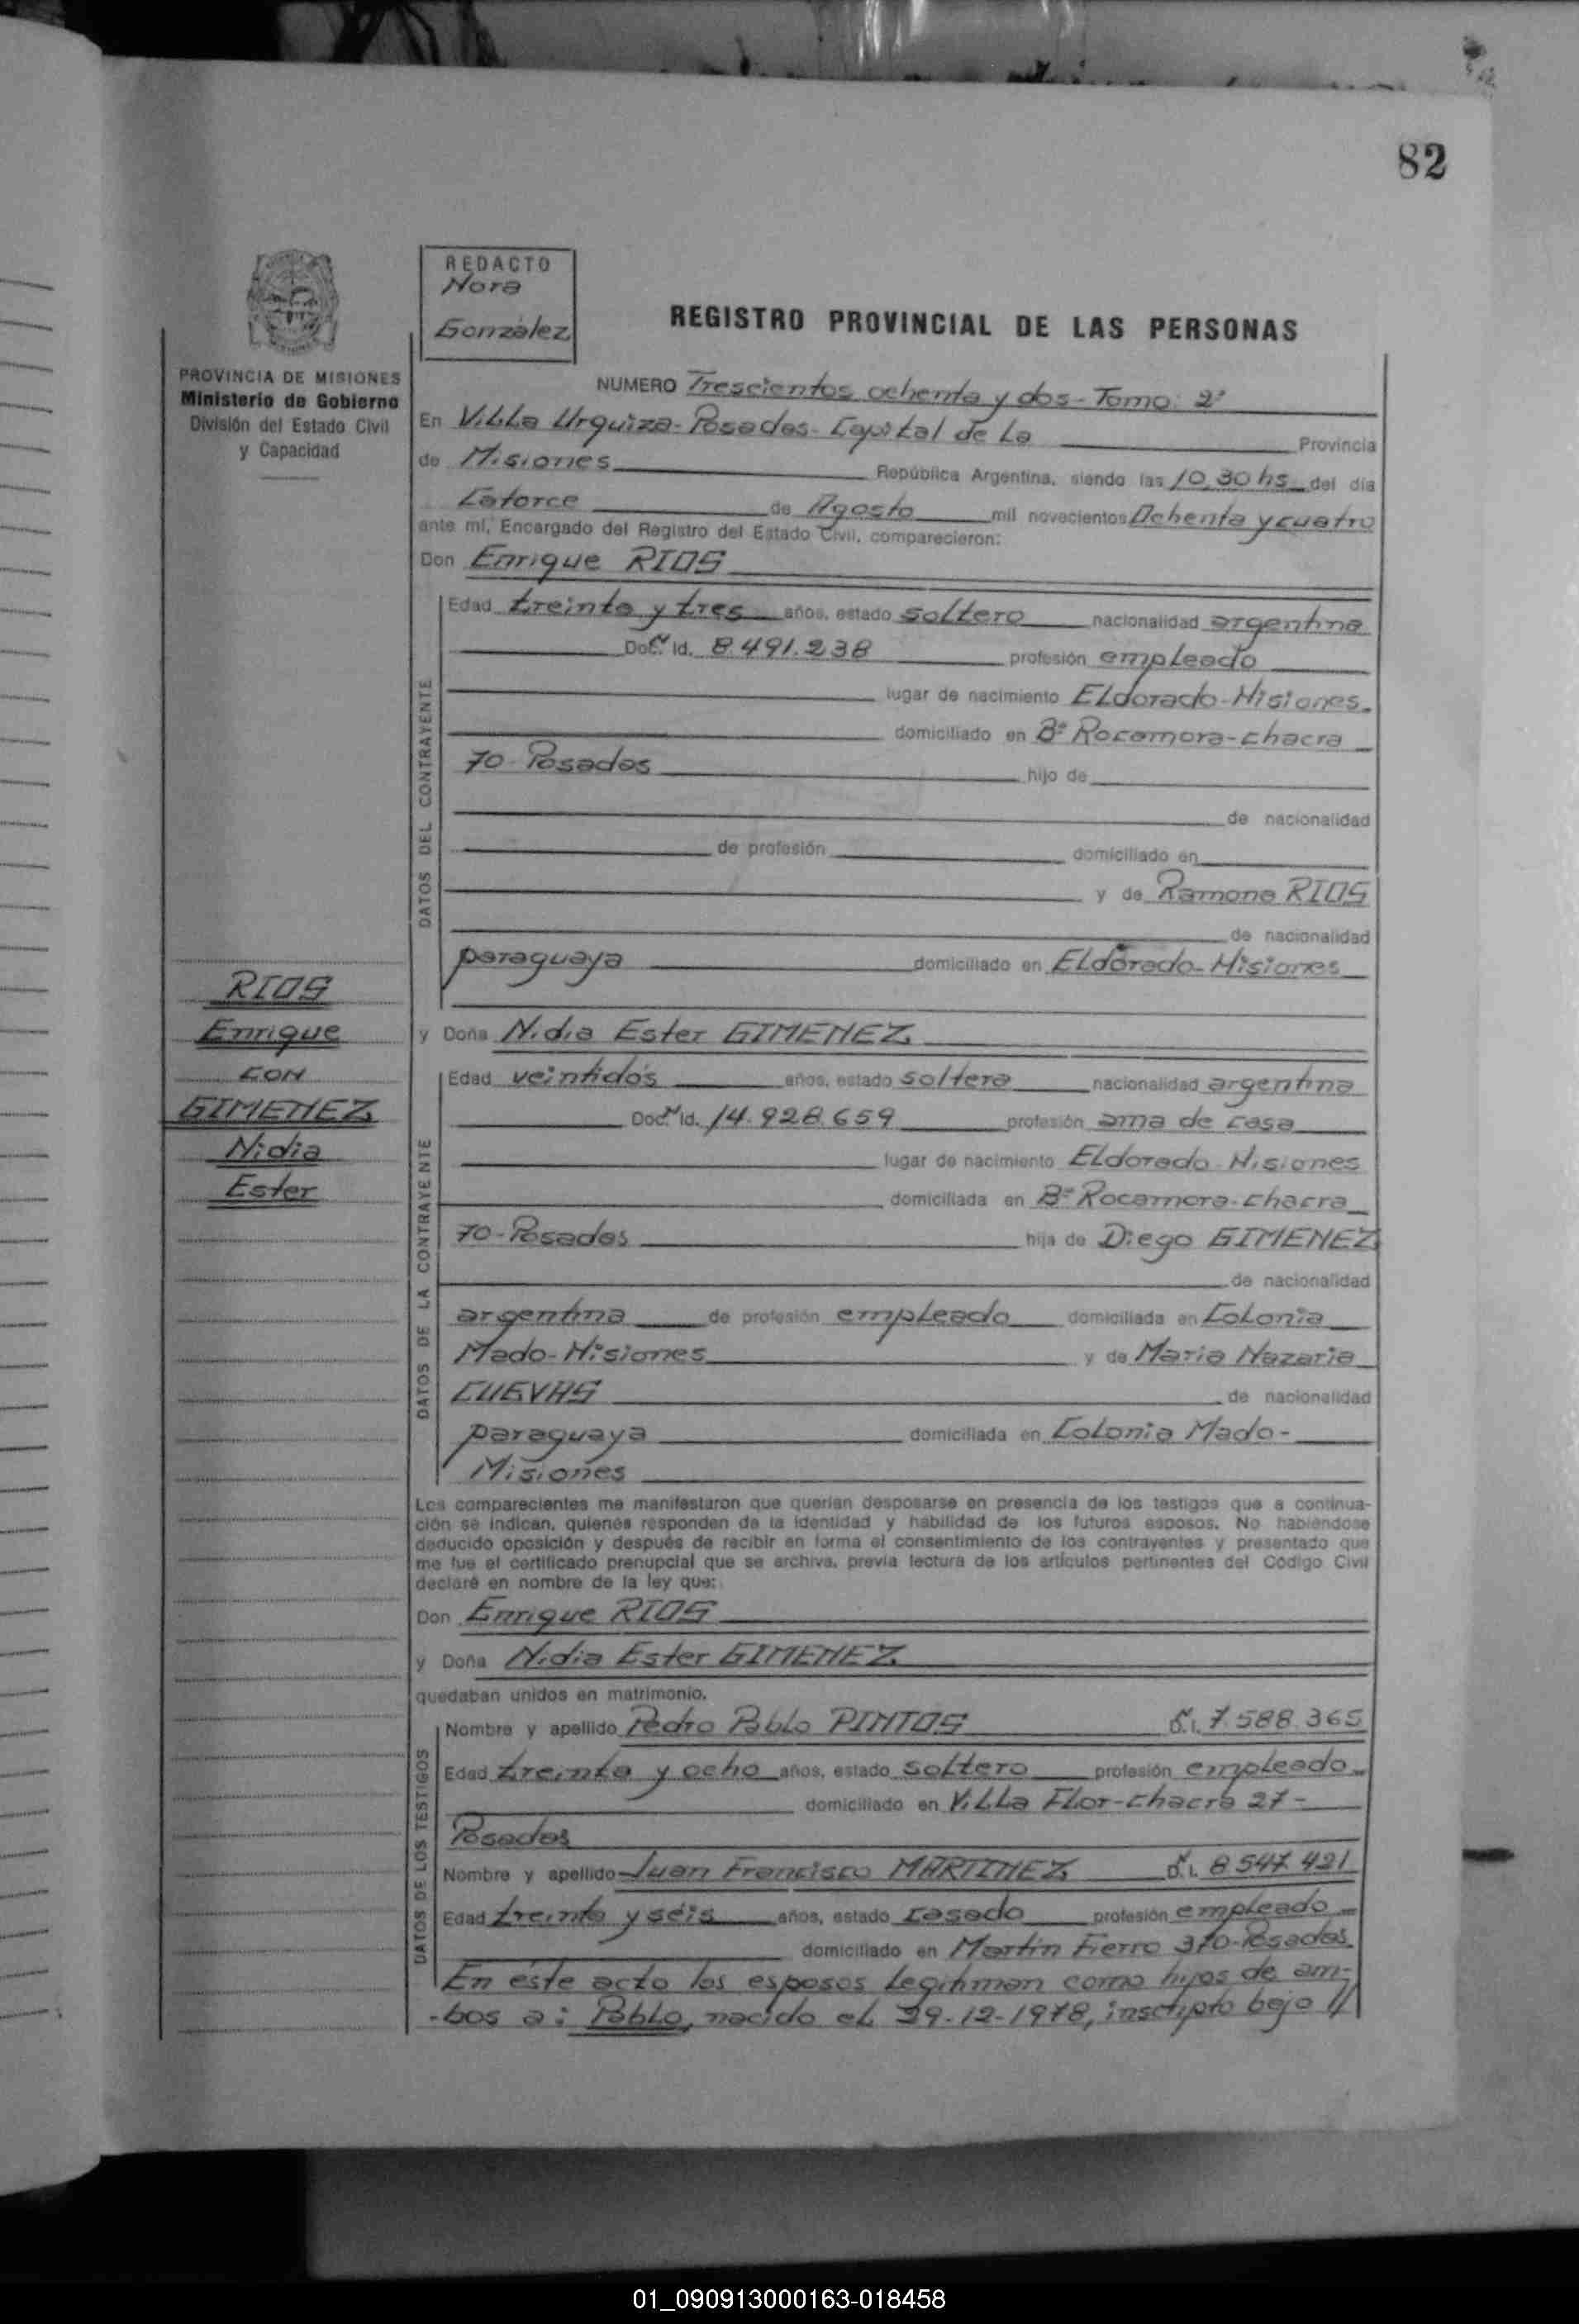 82
REDACTO
Nora
González
REGISTRO PROVINCIAL DE LAS PERSONAS
PROVINCIA DE MISIONES
Ministerio de Gobierno
División del Estado Civil
y Capacidad
NUMERO Trescientos ochenta y dos - Tomo: 2°
En Villa Urquiza - Posadas - Capital de La Provincia
de Misiones República Argentina, siendo las 10,30 hs del día
Catorce de Agosto mil novecientos Ochenta y cuatro
ante mí, Encargado del Registro del Estado Civil, comparecieron:
Don Enrique RIOS
DATOS DEL CONTRAYENTE
Edad treinta y tres años, estado soltero nacionalidad argentina
Doc. Id. 8.491.238 profesión empleado
lugar de nacimiento Eldorado - Misiones
domiciliado en B° Rocamora - chacra
70 - Posadas hijo de
de nacionalidad
de profesión domiciliado en
y de Ramona RIOS
de nacionalidad
paraguaya domiciliado en Eldorado - Misiones
RIOS
Enrique
CON
GIMENEZ
Nidia
Ester
y Doña Nidia Ester GIMENEZ
DATOS DE LA CONTRAYENTE
Edad veintidós años, estado soltera nacionalidad argentina
Doc. Id. 14.928.659 profesión ama de casa
lugar de nacimiento Eldorado - Misiones
domiciliada en B° Rocamora - chacra
70 - Posadas hija de Diego GIMENEZ
de nacionalidad
argentina de profesión empleado domiciliada en Colonia
Mado - Misiones y de Maria Nazaria
CUEVAS de nacionalidad
paraguaya domiciliada en Colonia Mado -
Misiones
Los comparecientes me manifestaron que querían desposarse en presencia de los testigos que a continua-
ción se indican, quienes responden de la identidad y habilidad de los futuros esposos. No habiéndose
deducido oposición y después de recibir en forma el consentimiento de los contrayentes y presentado que
me fue el certificado prenupcial que se archiva, previa lectura de los artículos pertinentes del Código Civil
declaré en nombre de la ley que:
Don Enrique RIOS
y Doña Nidia Ester GIMENEZ
quedaban unidos en matrimonio.
DATOS DE LOS TESTIGOS
Nombre y apellido Pedro Pablo PINTOS D.I. 7.588.365
Edad treinta y ocho años, estado soltero profesión empleado
domiciliado en Villa Flor - chacra 27 -
Posadas
Nombre y apellido Juan Francisco MARTINEZ D.I. 8.547.421
Edad treinta y seis años, estado casado profesión empleado
domiciliado en Martín Fierro 370 - Posadas
En este acto los esposos legitiman como hijos de am-
-bos a: Pablo, nacido el 29-12-1978, inscripto bajo //
01_090913000163-018458